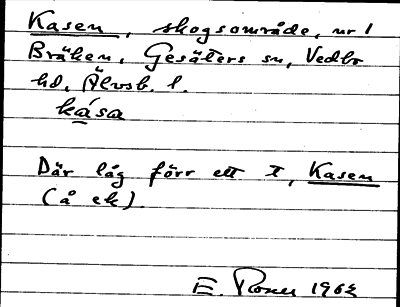 Kasen, skogsområde, nr 1
Bräken, Gesäters sn, Vedbo
hd, Älvsb. l.
ká̱sa
Där låg förr ett t, Kasen
(å ek).
E. 1962